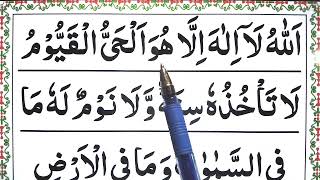 اَللّٰهُ لَآ اِلٰهَ اِلَّا هُوَ اَلْحَیُّ الْقَیُّوْمُ
لَا تَاْخُذُهٗ سِنَةٌ وَّلَا نَوْمٌ لَهٗ مَا
فِی السَّمٰوٰتِ وَمَا فِی الْاَرْضِ